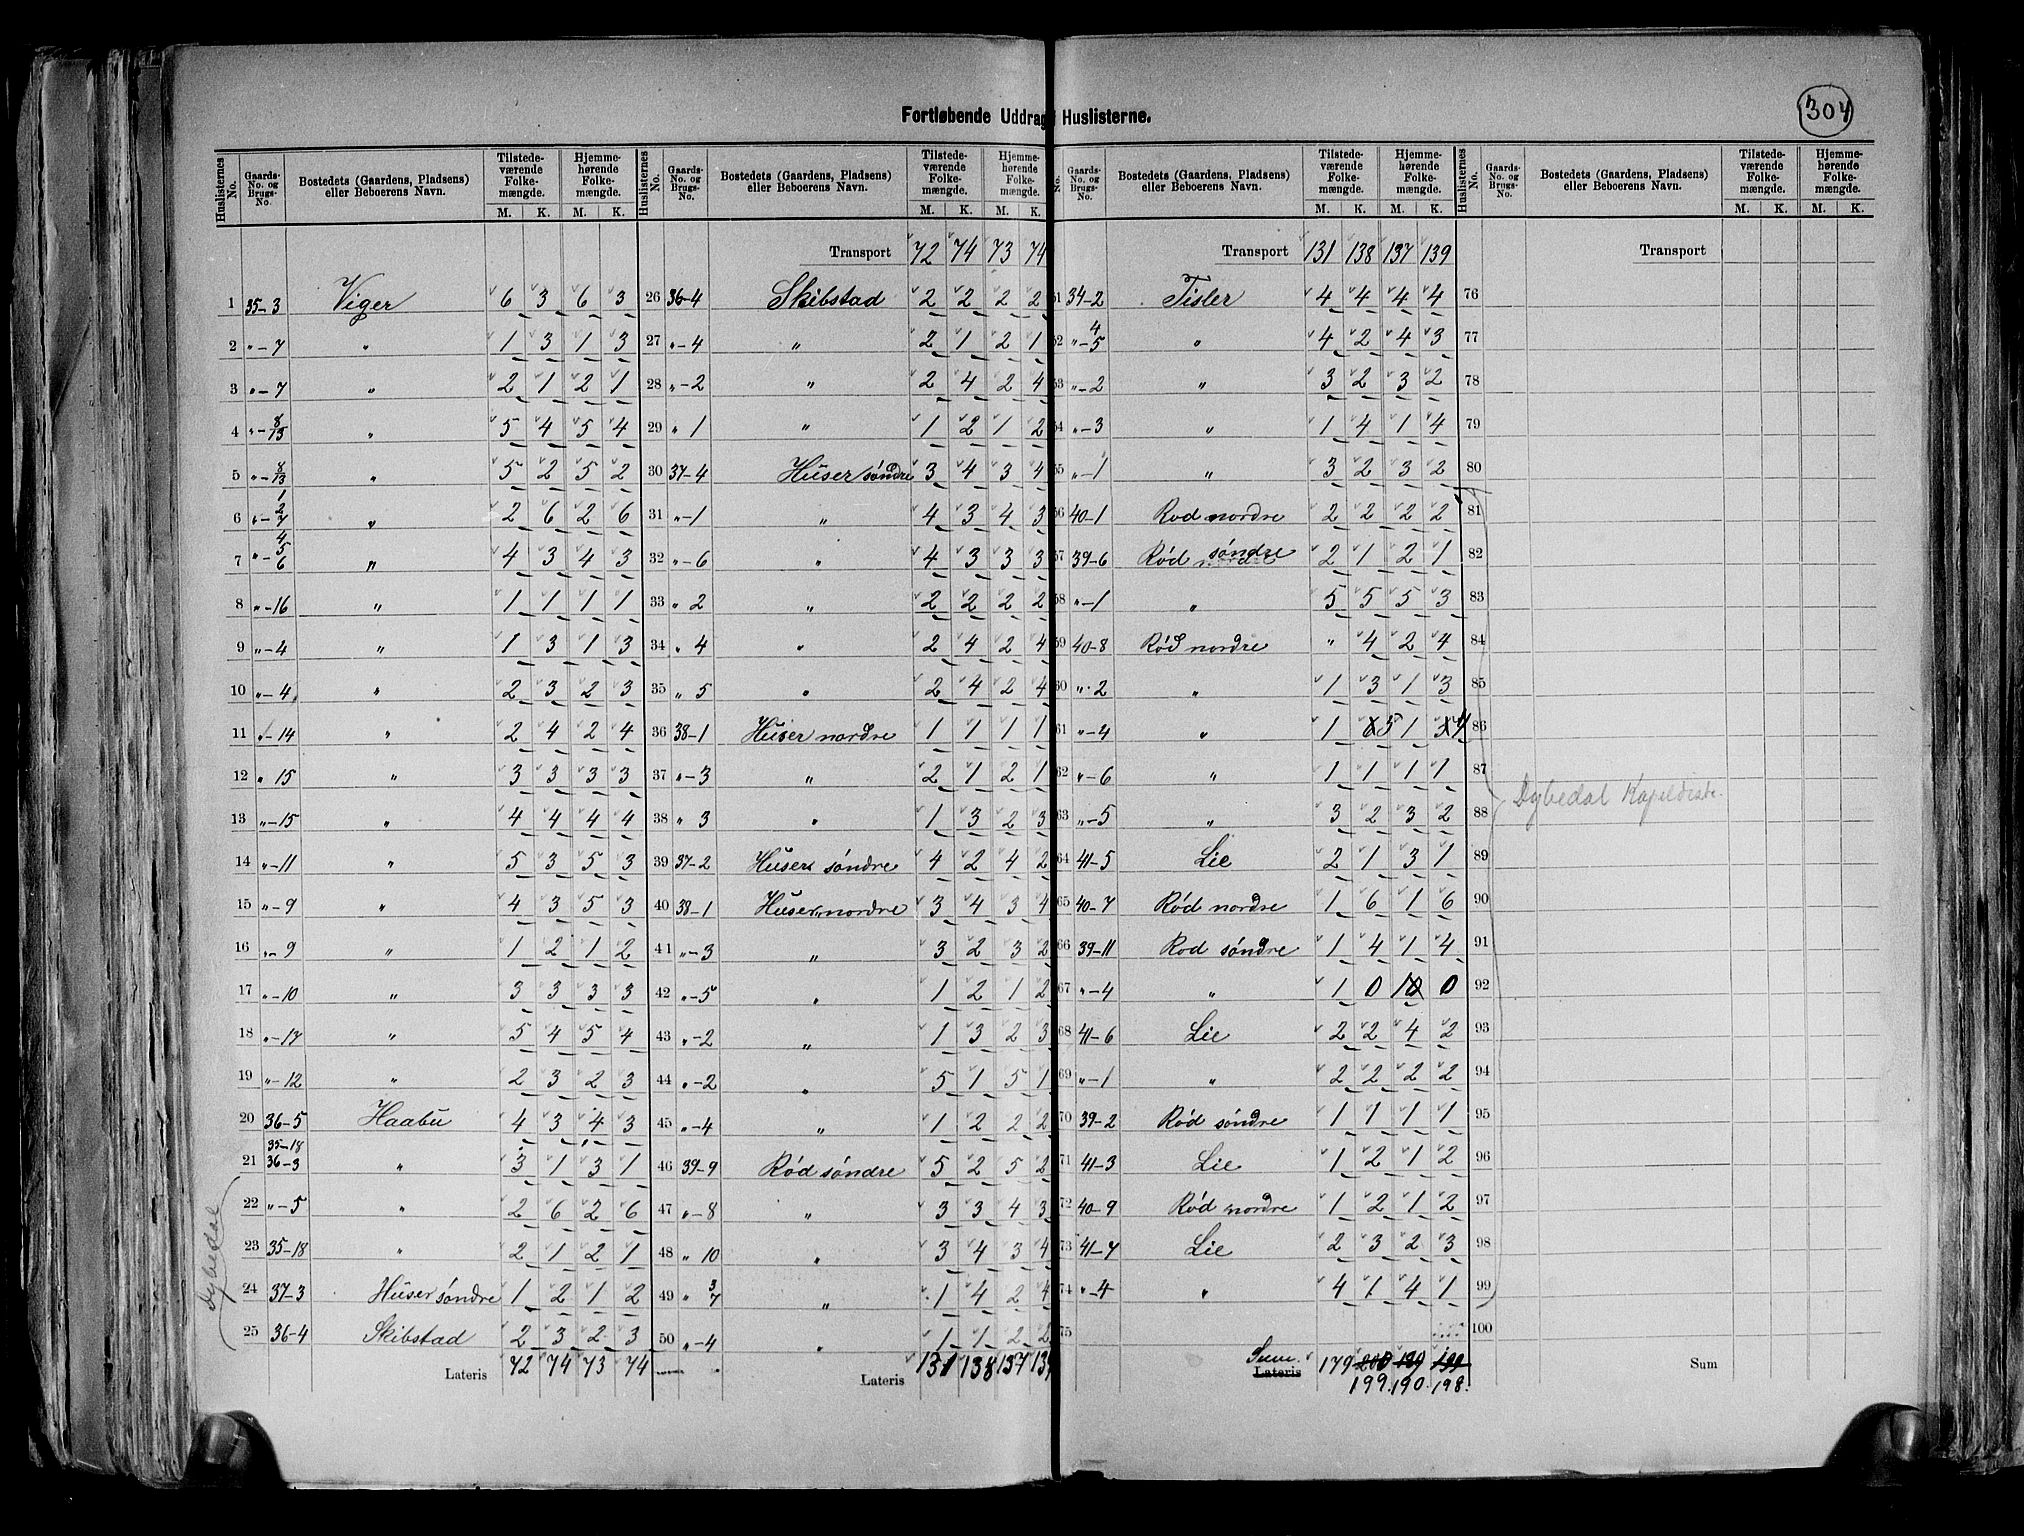 304
Fortløbende Uddrag Huslisterne.
Huslisternes No. | Gaards-No. og Brugs-No. | Bostedets (Gaardens, Pladsens) eller Beboerens Navn. | Tilstedeværende Folkemængde. M. K. | Hjemmehørende Folkemængde. M. K.
1 35-3 Viger 6 3 6 3
2 "-7 " 1 3 1 3
3 "-7 " 2 1 2 1
4 "-8/13 " 5 4 5 4
5 "-8/13 " 5 2 5 2
6 "-1 2 7 " 2 6 2 6
7 "-4 5 6 " 4 3 4 3
8 "-16 " 1 1 1 1
9 "-4 " 1 3 1 3
10 "-4 " 2 3 2 3
11 "-14 " 2 4 2 4
12 " 15 " 3 3 3 3
13 "-15 " 4 4 4 4
14 "-11 " 5 3 5 3
15 "-9 " 4 3 5 3
16 "-9 " 1 2 1 2
17 "-10 " 3 3 3 3
18 "-17 " 5 4 5 4
19 "-12 " 2 3 2 3
20 36-5 Haabu 4 3 4 3
21 35-18 36-3 " 3 1 3 1
22 "-5 " 2 6 2 6
23 35-18 " 2 1 2 1
24 37-3 Huser søndre 1 2 1 2
25 36-4 Skibstad 2 3 2 3
Lateris 72 74 73 74
Dybedal
Huslisternes No. | Gaards-No. og Brugs-No. | Bostedets (Gaardens, Pladsens) eller Beboerens Navn. | Tilstedeværende Folkemængde. M. K. | Hjemmehørende Folkemængde. M. K.
Transport 72 74 73 74
26 36-4 Skibstad 2 2 2 2
27 "-4 " 2 1 2 1
28 "-2 " 2 4 2 4
29 " 1 " 1 2 1 2
30 37-4 Huser søndre 3 4 3 4
31 "-1 " 4 3 4 3
32 "-6 " 4 3 3 3
33 " 2 " 2 2 2 2
34 " 4 " 2 4 2 4
35 " 5 " 2 4 2 4
36 38-1 Huser nordre 1 1 1 1
37 "-3 " 2 1 2 1
38 " 3 " 1 3 2 3
39 37-2 Huser søndre 4 2 4 2
40 38-1 Huser nordre 3 4 3 4
41 "-3 " 3 2 3 2
42 "-5 " 1 2 1 2
43 "-2 " 1 3 2 3
44 "-2 " 5 1 5 1
45 "-4 " 1 2 2 2
46 39-9 Rød søndre 5 2 5 2
47 "-8 " 3 3 4 3
48 " 10 " 3 4 3 4
49 " 3 7 " 1 4 2 4
50 "-4 " 1 1 2 2
Lateris 131 138 137 139
No. | Gaards-No. og Brugs-No. | Bostedets (Gaardens, Pladsens) eller Beboerens Navn. | Tilstedeværende Folkemængde. M. K. | Hjemmehørende Folkemængde. M. K.
Transport 131 138 137 139
51 34-2 Tisler 4 4 4 4
52 "-4 5 " 4 2 4 3
53 "-2 " 3 2 3 2
54 "-3 " 1 4 1 4
55 "-1 " 3 2 3 2
56 40-1 Rød nordre 2 2 2 2
57 39-6 Rød nordre søndre 2 1 2 1
58 "-1 " 5 5 5 3
59 40-8 Rød nordre " 4 2 4
60 "-2 " 1 3 1 3
61 "-4 " 1 5 1 4
62 "-6 " 1 1 1 1
63 "-5 " 3 2 3 2
64 41-5 Lie 2 1 3 1
65 40-7 Rød nordre 1 6 1 6
66 39-11 Rød søndre 1 4 1 4
67 "-4 " 1 0 1 0 0
68 41-6 Lie 2 2 4 2
69 "-1 " 2 2 2 2
70 39-2 Rød søndre 1 1 1 1
71 41-3 Lie 1 2 1 2
72 40-9 Rød nordre 1 2 1 2
73 41-7 Lie 2 3 2 3
74 "-4 " 4 1 4 1
75
Sum. Lateris 179 200 189 199
199. 190. 198.
Huslisternes No. | Gaards-No. og Brugs-No. | Bostedets (Gaardens, Pladsens) eller Beboerens Navn. | Tilstedeværende Folkemængde. M. K. | Hjemmehørende Folkemængde. M. K.
Transport
76
77
78
79
80
81
82
83
84
85
86
87
Dybedal Kapeldistr.
88
89
90
91
92
93
94
95
96
97
98
99
100
Sum